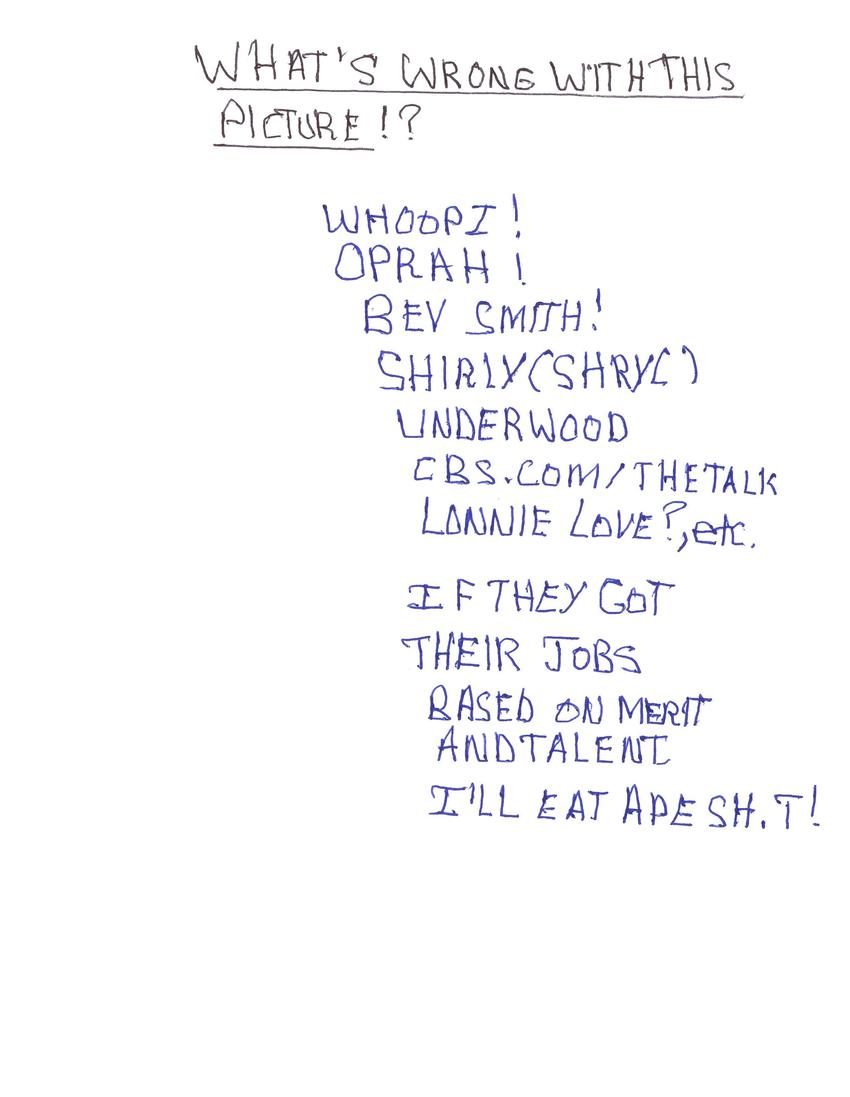 WHAT'S WRONG WITH THIS
PICTURE!?
WHOOPI!
OPRAH!
BEV SMITH!
SHIRLY(SHRYL)
UNDERWOOD
CBS.COM/THETALK
LONNIE LOVE?,etc.
IF THEY GOT
THEIR JOBS
BASED ON MERIT
AND TALENT
I'LL EAT APE SH.T!